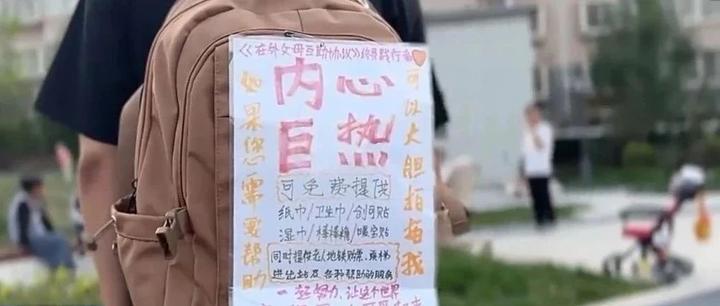 《在外父母互助协议》终身践行者
如果您需要帮助
内心
巨热
可以大胆拍拍我
可免费提供
纸巾/卫生巾/创可贴
湿巾/棒棒糖/暖宝贴
同时提供老人地铁购票、乘梯
进出站及各种帮助的服务
一起努力,让这个世界